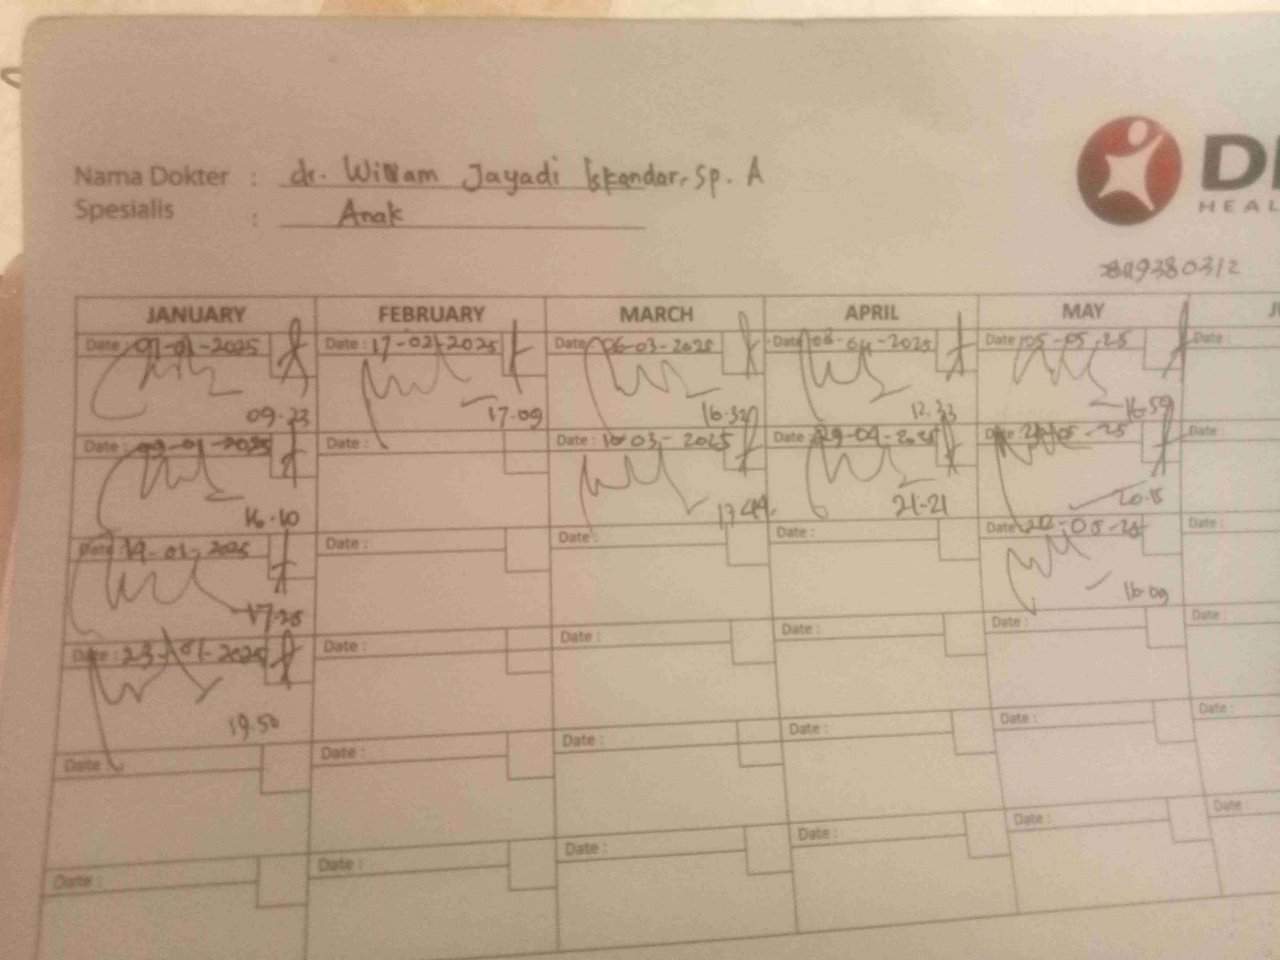 Nama Dokter : dr. William Jayadi Iskandar, Sp. A
Spesialis : Anak
DE
HEAL
JANUARY FEBRUARY MARCH APRIL MAY
Date : 07-01-2025 Date : 17-02-2025 Date : 06-03-2025 Date : 08-04-2025 Date : 05-05-25 Date :
09.22 17.09 16.32 12.33 16.59
Date : 09-01-2025 Date : Date : 10-03-2025 Date : 29-04-2025 Date : -05-25 Date :
16.10 17.44 21-21 20.15
Date : 19-01-2025 Date : Date : Date : Date : 20-05-25 Date :
17.25 16.09
Date : 23-01-2025 Date : Date : Date : Date : Date :
19.50
Date : Date : Date : Date : Date : Date :
Date : Date : Date : Date : Date : Date :